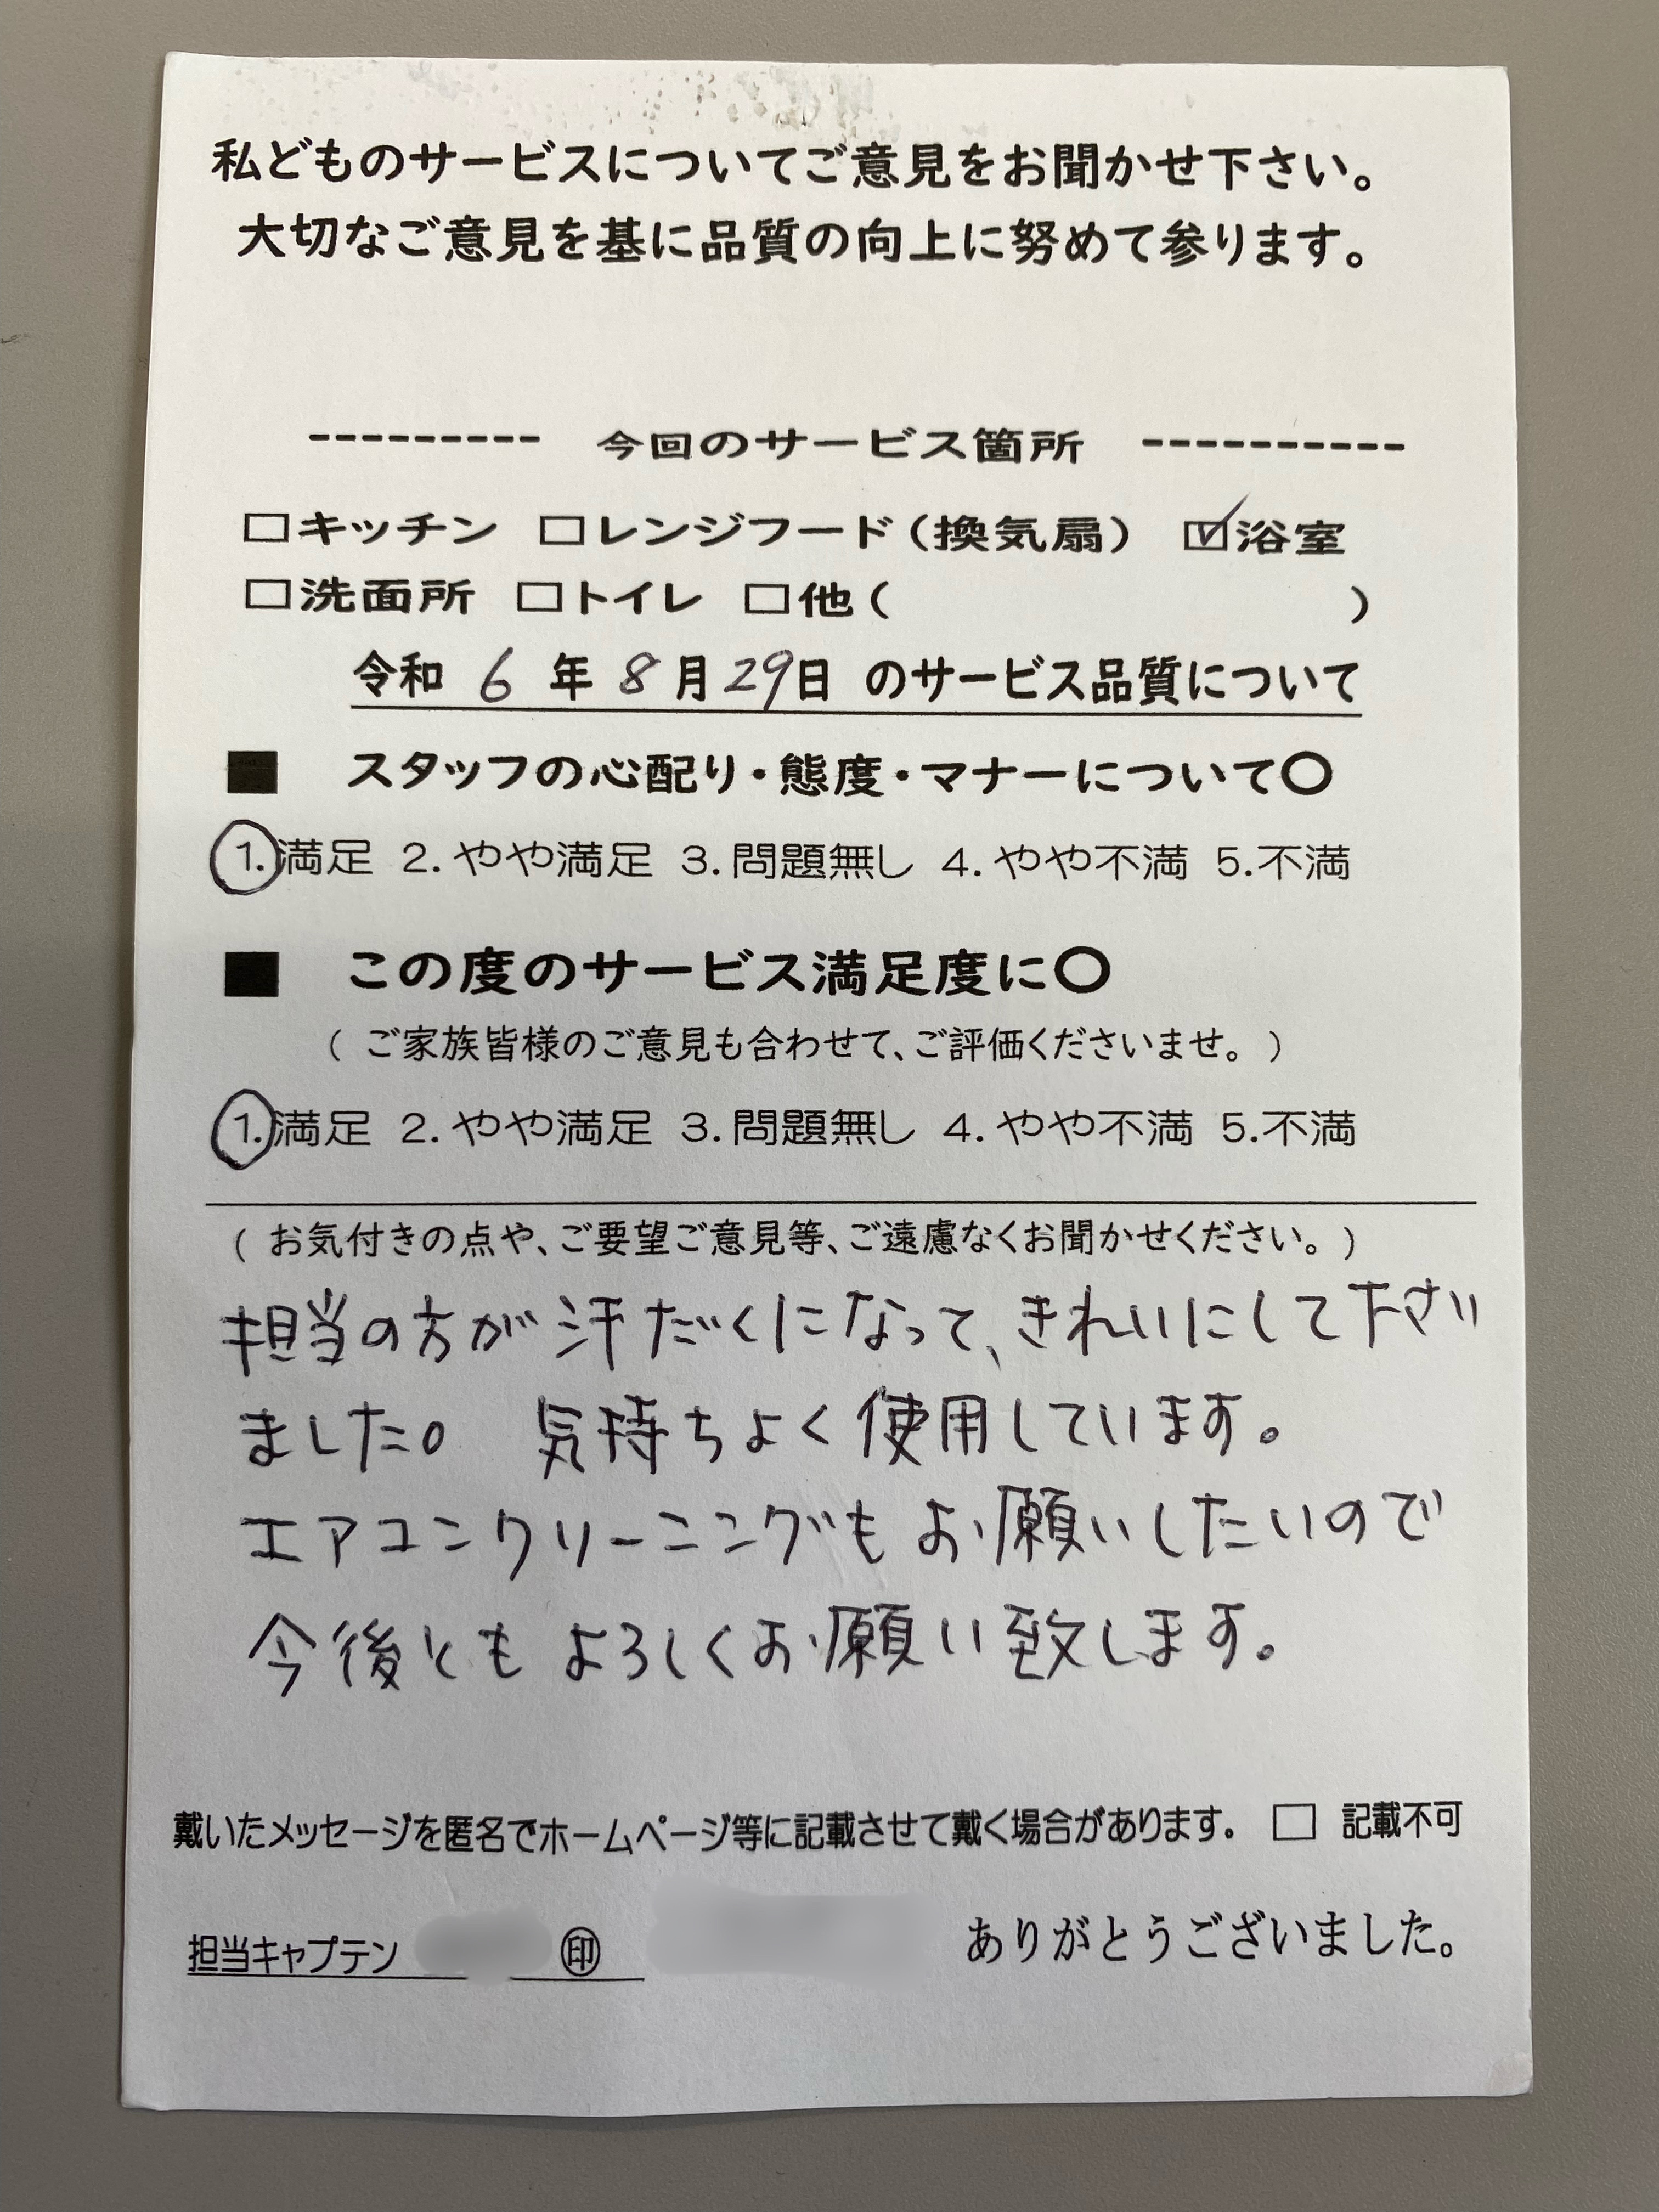 私どものサービスについてご意見をお聞かせ下さい。
大切なご意見を基に品質の向上に努めて参ります。
--------- 今回のサービス箇所 ----------
□キッチン □レンジフード(換気扇) ☑浴室
□洗面所 □トイレ □他( )
令和 6 年 8 月 29日 のサービス品質について
■ スタッフの心配り・態度・マナーについて〇
1.満足 2.やや満足 3.問題無し 4.やや不満 5.不満
■ この度のサービス満足度に〇
( ご家族皆様のご意見も合わせて、ご評価くださいませ。 )
1.満足 2.やや満足 3.問題無し 4.やや不満 5.不満
( お気付きの点や、ご要望ご意見等、ご遠慮なくお聞かせください。 )
担当の方が汗だくになって、きれいにして下さい
ました。 気持ちよく使用しています。
エアコンクリーニングもお願いしたいので
今後ともよろしくお願い致します。
戴いたメッセージを匿名でホームページ等に記載させて戴く場合があります。 □ 記載不可
担当キャプテン ㊞ ありがとうございました。